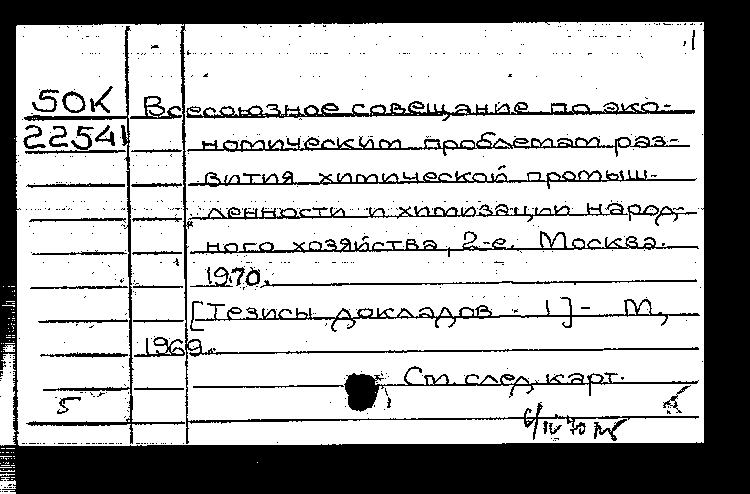 1
50К Всесоюзное совещание по эко-
22541 номическим проблемам раз-
вития химической промыш-
ленности и химизации народ-
ного хозяйства, 2-е. Москва.
1970.
[Тезисы докладов. 1] - М.,
1969.
См. след. карт.
5